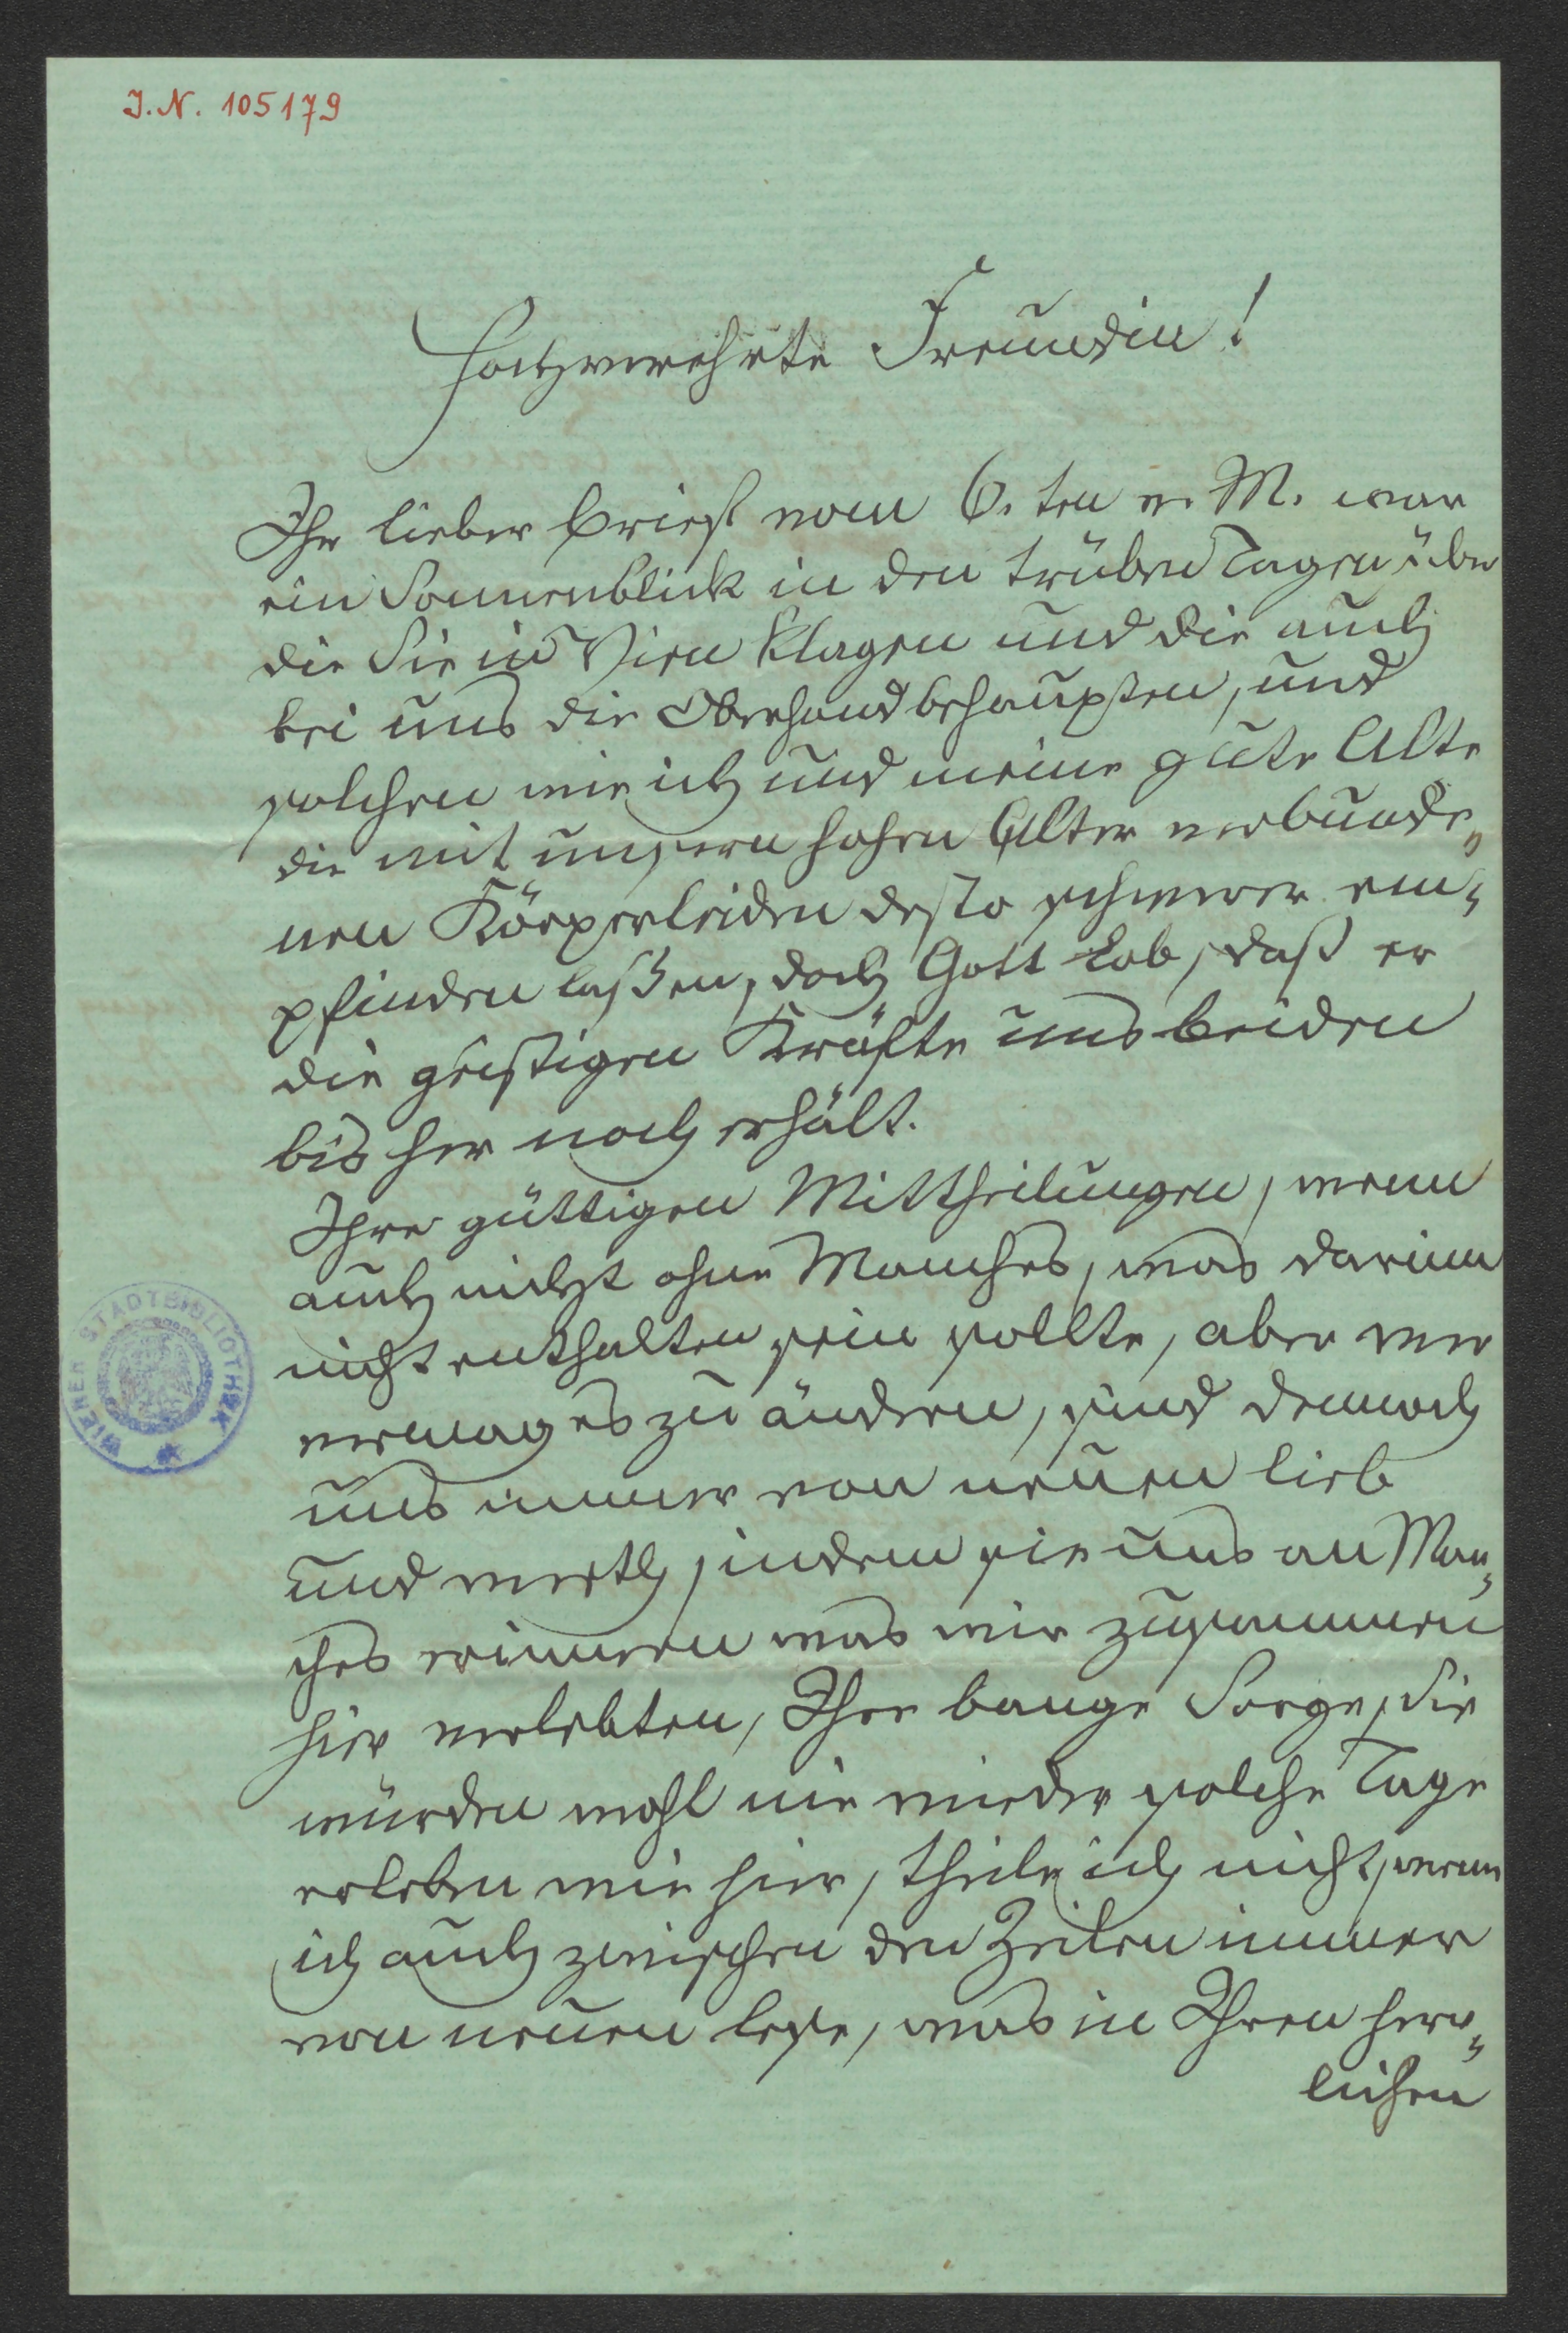 I.N. 105179
Hochverehrte Freundin!
Ihr lieber Brief vom 6.ten v. M. war
ein Sonnenblick in den trüben Tagen über
die Sie in Wien klagen und die auch
bei uns die Oberhand behaupten, und
solchen wie ich und meine gute Alte
die mit unsern hohen Alter verbunde„
nen Körperleiden desto schwerer em„
pfinden laßen, doch Gott Lob, daß er
die geistigen Kräfte uns beiden
bis her noch erhält.
Ihre güttigen Mittheilungen, wenn
auch nicht ohne Manches, was darinn
nicht enthalten sein sollte, aber wer
vermag es zu ändern, sind dennoch
uns immer von neuen lieb
und werth, indem sie uns an Man„
ches erinnern was wir zusammen
hier verlebten, Ihre bange Sorge, Sie
würden wohl nie wieder solche Tage
erleben wie hier, theile ich nicht, wenn
ich auch zwischen den Zeilen immer
von neuen lese, was in Ihren herr„
lichen
WIENER STADTBIBLIOTHEK